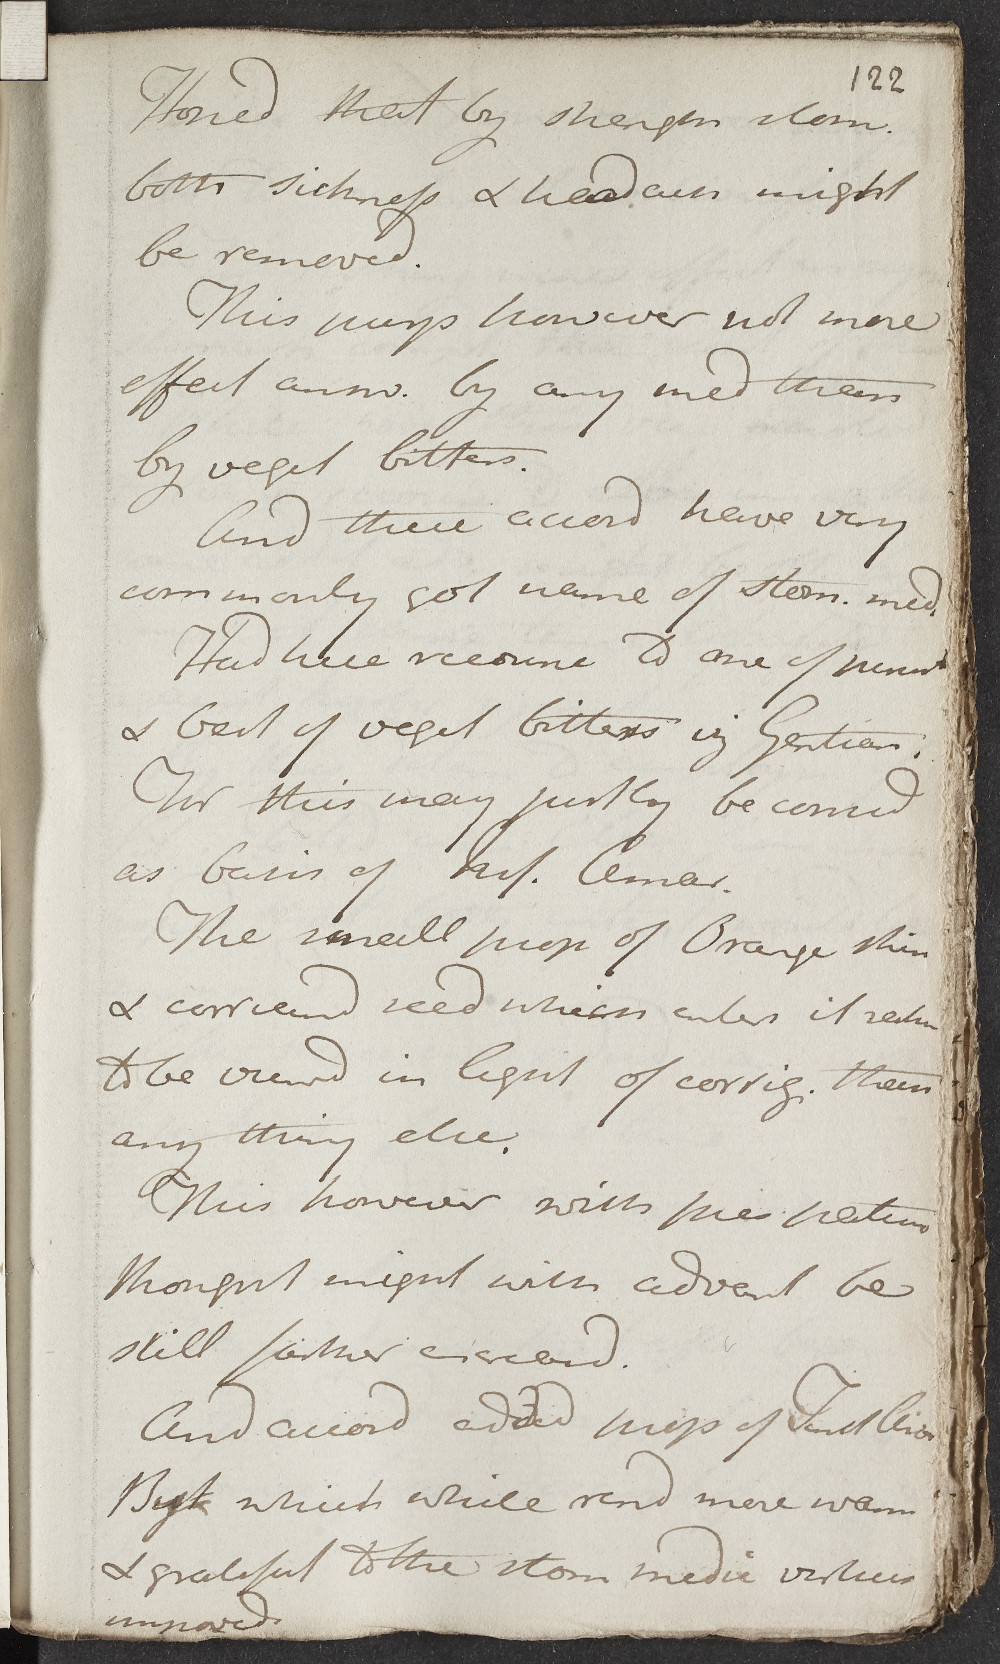 122
Hoped that by strength stom.
both sickness & headach might
be removed.
This purp however not more
effect answ. by any med than
by veget bitters.
And these accord have very
commonly got name of stom. med.
Had here recourse to one of purest
& best of veget bitters viz Gentian.
For this may justly be consid
as basis of Inf. Amar.
The small prop of Orange skin
& corriand seed which enters it rather
to be viewd in light of corrig. than
any thing else.
This however with pres patient
thought might with advant be
still farther increasd.
And accord added prop of Tinct
which while rend more warm
& grateful to the stom medic virtues
improved.